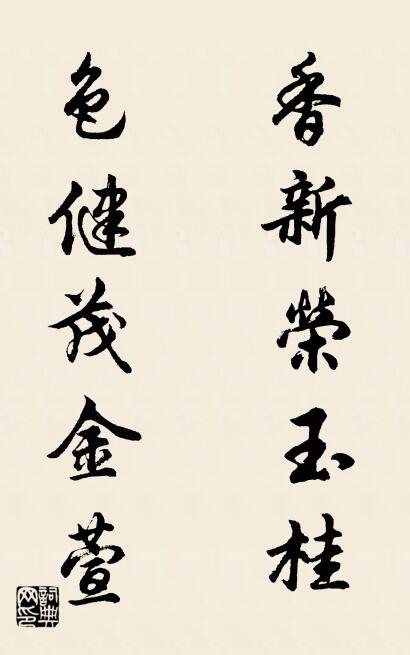 香新榮玉桂
色健茂金萱
詞典網印